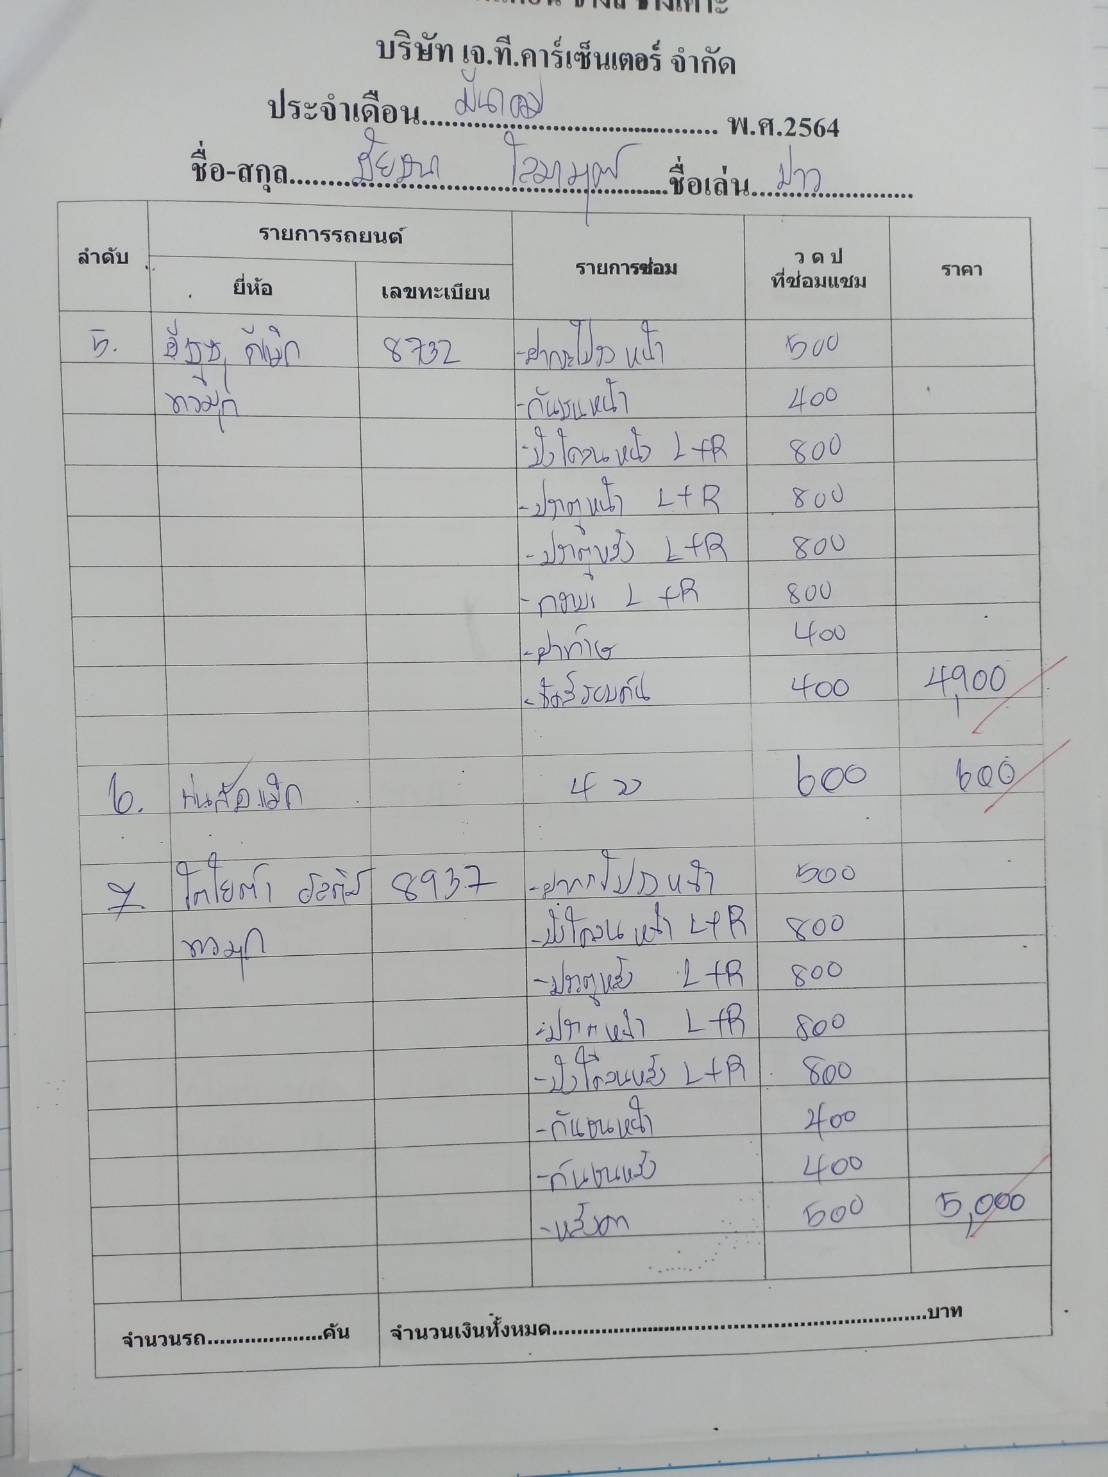 บริษัท เจ.ที.คาร์เซ็นเตอร์ จำกัด
ประจำเดือน มีนาคม พ.ศ.2564
ชื่อ-สกุล ชื่อเล่น ปาว
ลำดับ รายการรถยนต์ รายการซ่อม ว ด ป ที่ซ่อมแซม ราคา
ยี่ห้อ เลขทะเบียน
5. อีซูซุ ดีแม็ก 8732 -ฝากระโปรงหน้า 500
ขาวมุก -กันชนหน้า 400
-บังโคลนหน้า L+R 800
-ประตูหน้า L+R 800
-ประตูหลัง L+R 800
-กะบะ L+R 800
-ฝาท้าย 400
-ขัดสีรอบคัน 400 4,900
6. พ่นล้อแม็ก 4 วง 600 600
7. โตโยต้า อัลติส 8937 -ฝากระโปรงหน้า 500
ขาวมุก -บังโคลนหน้า L+R 800
-ประตูหลัง L+R 800
-ประตูหน้า L+R 800
-บังโคลนหลัง L+R 800
-กันชนหน้า 400
-กันชนหลัง 400
-หลังคา 500 5,000
จำนวนรถ คัน จำนวนเงินทั้งหมด บาท